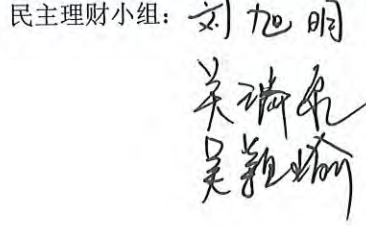 民主理财小组：刘旭明
吴瑞
吴颖瑜